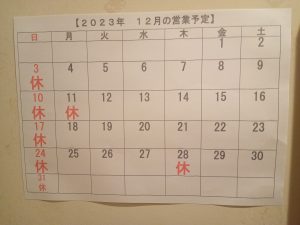 【２０２３年　１２月の営業予定】
日 月 火 水 木 金 土
1 2
3 4 5 6 7 8 9
休
10 11 12 13 14 15 16
休 休
17 18 19 20 21 22 23
休
24 25 26 27 28 29 30
休 休
31
休